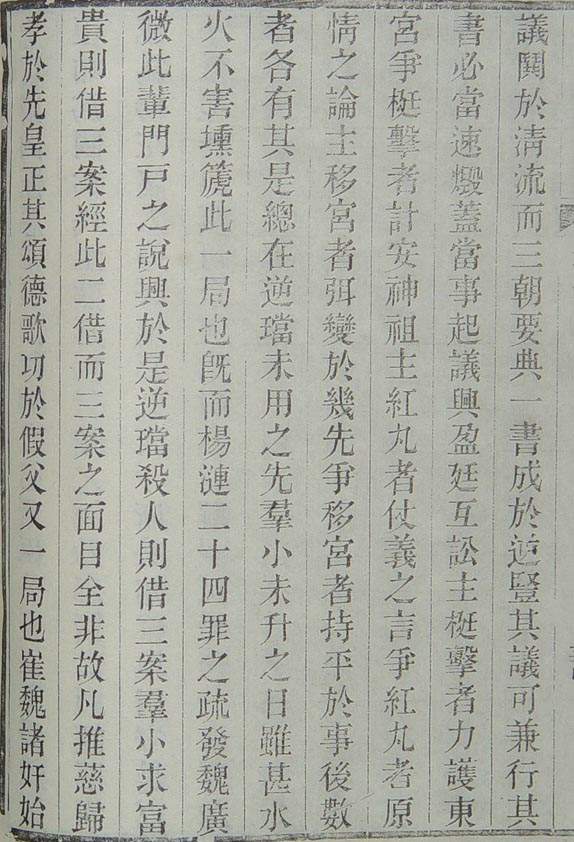 議鬨於清流而三朝要典一書成於逆豎其議可兼行其
書必當速燬蓋當事起議興盈廷互訟主梃擊者力護東
宮爭梃擊者計安神祖主紅丸者仗義之言爭紅丸者原
情之論主移宮者弭變於幾先爭移宮者持平於事後數
者各有其是總在逆璫未用之先羣小未升之日雖甚水
火不害壎篪此一局也旣而楊漣二十四罪之疏發魏廣
微此輩門戸之說興於是逆璫殺人則借三案羣小求富
貴則借三案經此二借而三案之面目全非故凡推慈歸
孝於先皇正其頌德歌功於假父又一局也崔魏諸奸始